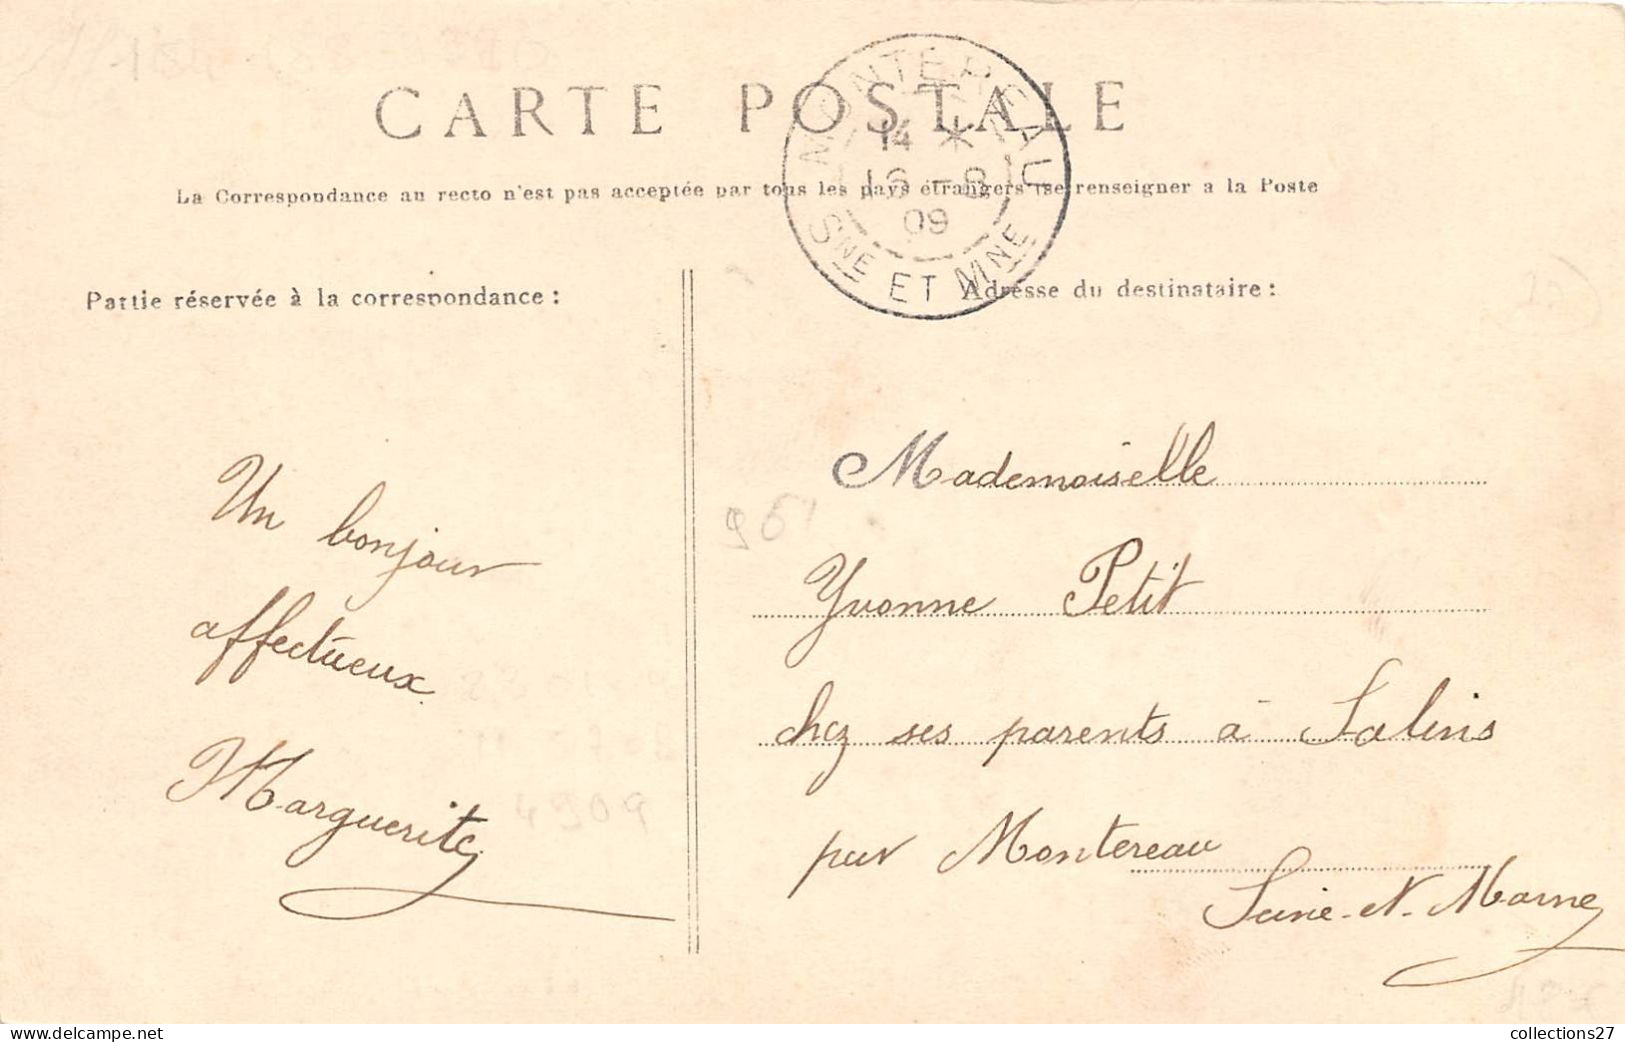 CARTE POSTALE
La Correspondance au recto n'est pas acceptée par tous les pays étrangers (se renseigner a la Poste
MONTEREAU
14 *
16 - 8
09
SNE ET MNE
Partie réservée à la correspondance :
Adresse du destinataire :
Un bonjour
affectueux
Marguerite
Mademoiselle
Yvonne Petit
chez ses parents à Salins
par Montereau
Seine-et-Marne
collections27